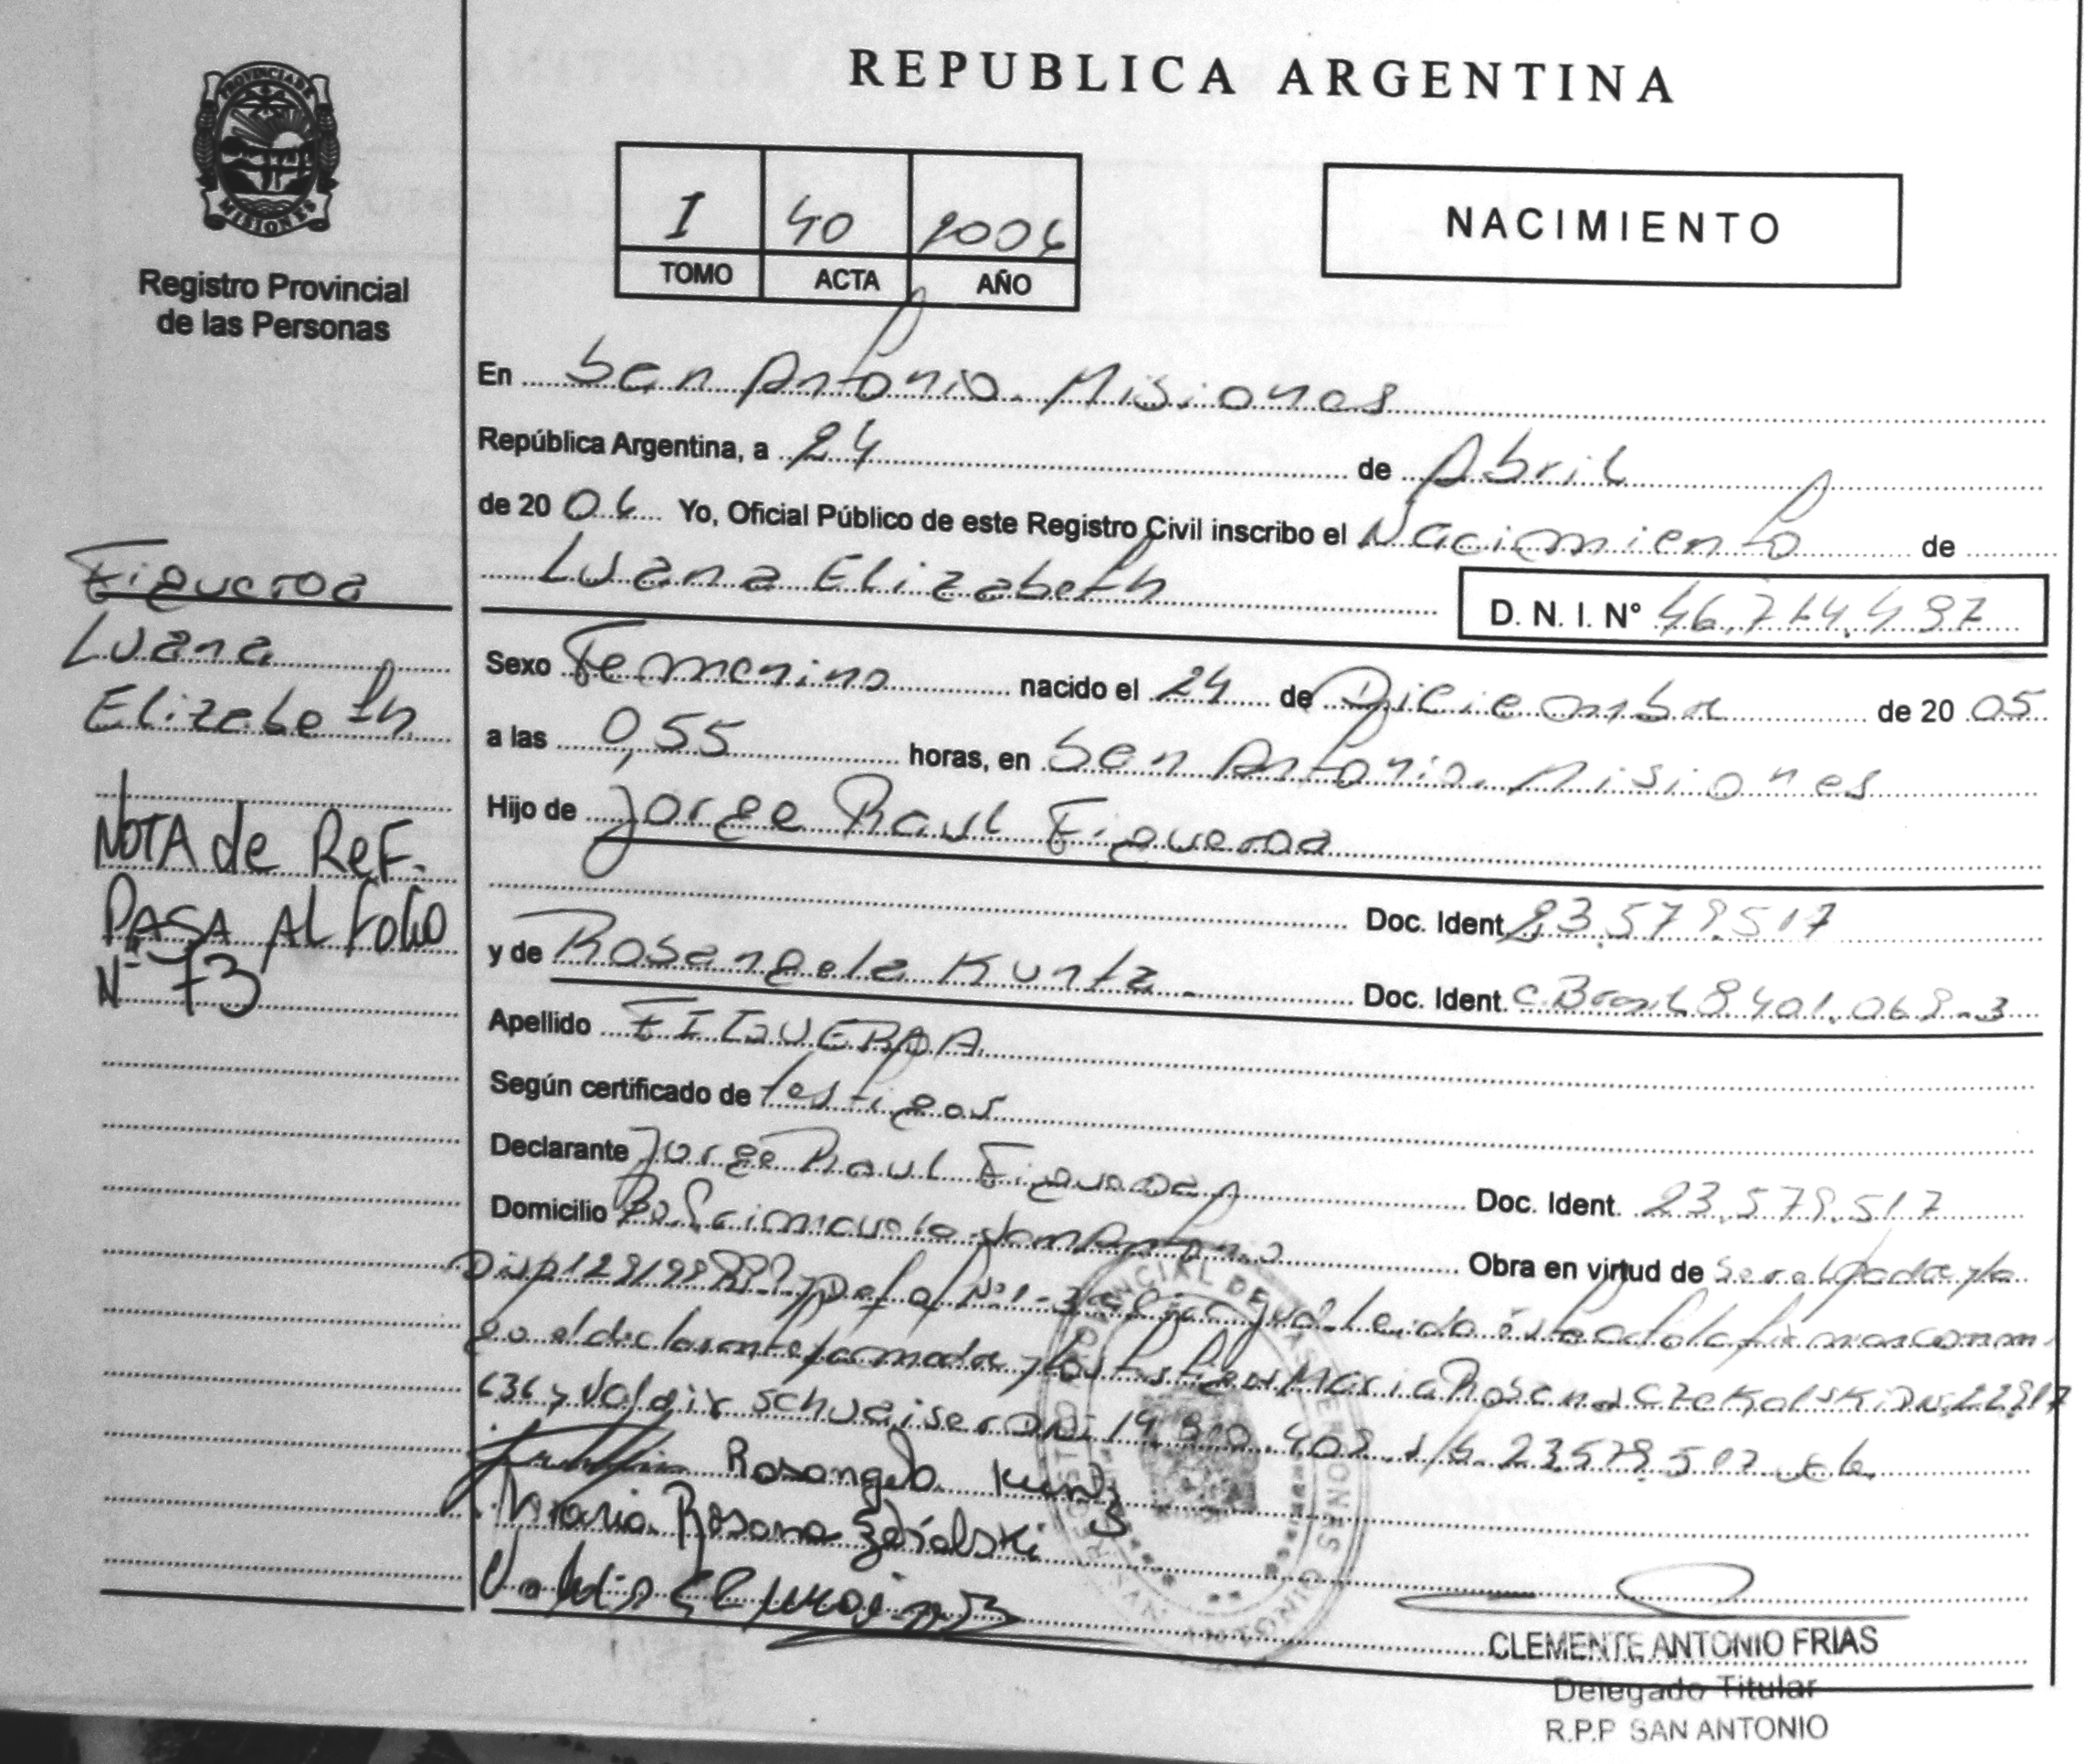 REPUBLICA ARGENTINA
PROVINCIA DE MISIONES
Registro Provincial
de las Personas
I 40 2006
TOMO ACTA AÑO
NACIMIENTO
En San Antonio. Misiones
República Argentina, a 24 de Abril
de 20 06 Yo, Oficial Público de este Registro Civil inscribo el Nacimiento de
Luana Elizabeth
D. N. I. Nº 46.714.497
Sexo Femenino nacido el 24 de Diciembre de 20 05
a las 0,55 horas, en San Antonio. Misiones
Hijo de Jorge Raul Figueroa
Doc. Ident. 23.579.517
y de Rosangela Kuntz Doc. Ident. C. Brasil 8.401.069-3
Apellido FIGUEROA
Según certificado de testigos
Declarante Jorge Raul Figueroa Doc. Ident. 23.579.517
Domicilio San Antonio Obra en virtud de
Disp 129/99
el declarante María Rosana Czekalski
636 y Valdir Schuaiser DNI
Rosangela Kuntz
Maria Rosana
Valdir
Figueroa
Luana
Elizabeth
NOTA de REF.
PASA AL FOLIO
N° 73
REGISTRO PROVINCIAL DE LAS PERSONAS
SAN ANTONIO MISIONES
CLEMENTE ANTONIO FRIAS
Delegado Titular
R.P.P SAN ANTONIO